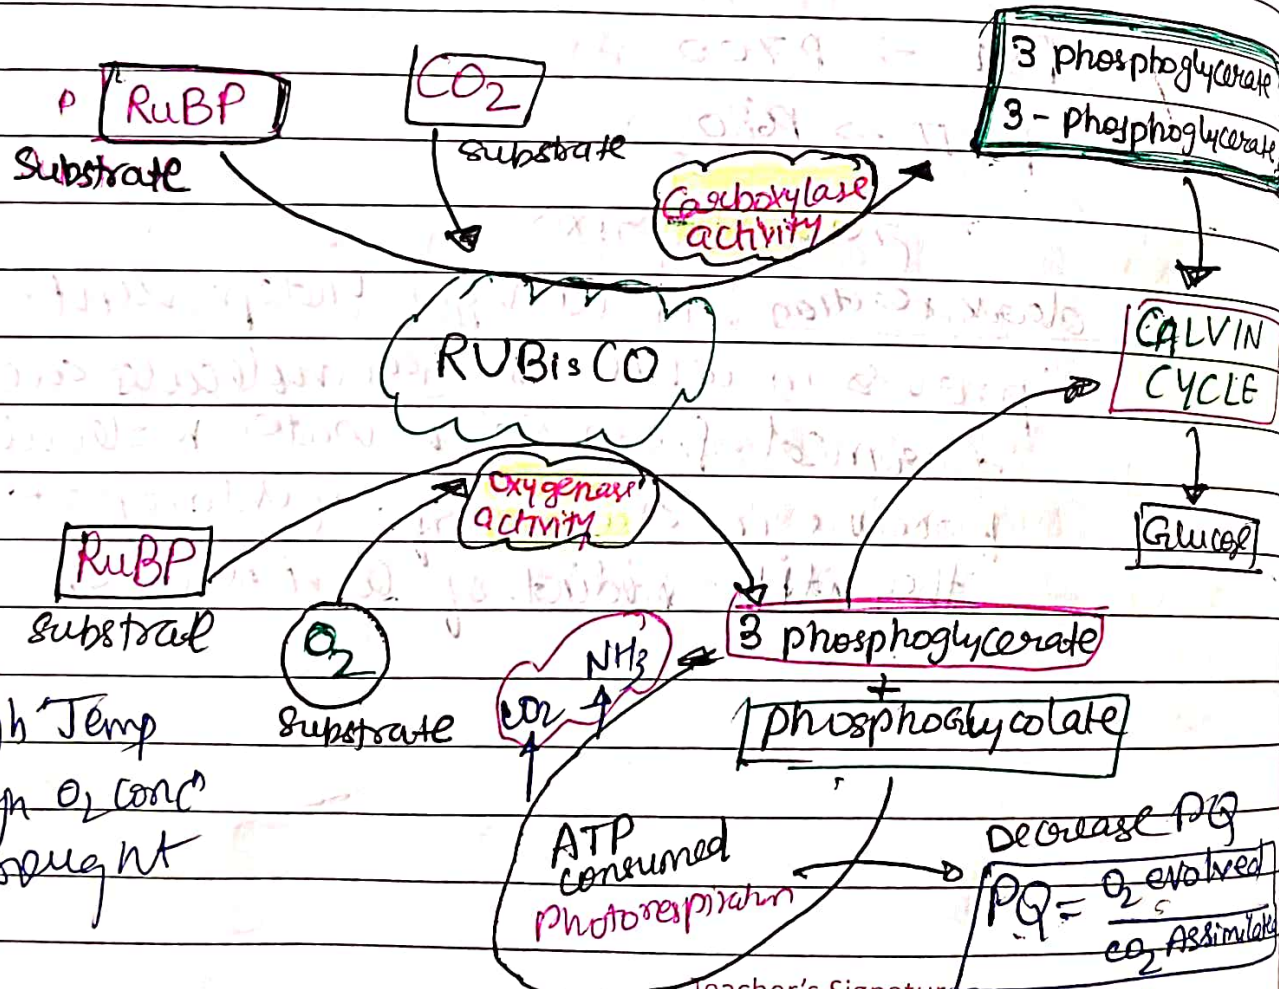 RuBP
Substrate
CO2
substrate
3 phosphoglycerate
3 - phosphoglycerate
Carboxylase
activity
RUBisCO
CALVIN
CYCLE
Glucose
oxygenase
activity
RuBP
substrate
O2
substrate
3 phosphoglycerate
+
phosphoglycolate
NH3
CO2
Temp
O2 conc
ATP
consumed
Photorespiration
Decrease PQ
PQ = O2 evolved
CO2 Assimilated